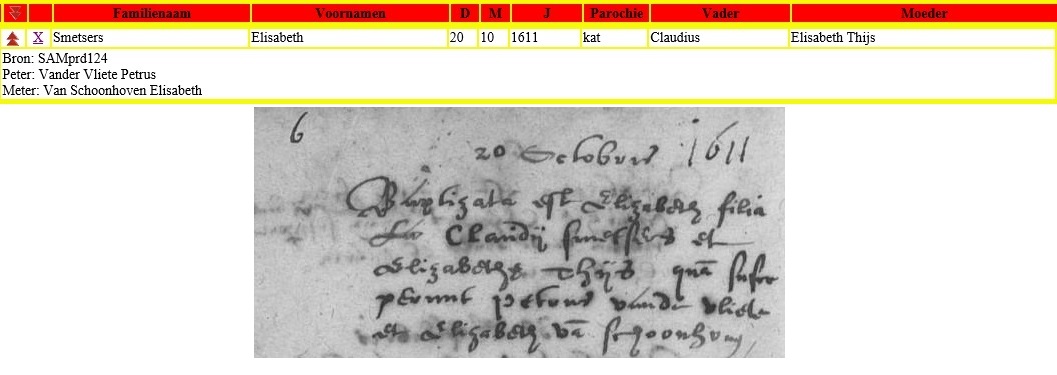 Familienaam Voornamen D M J Parochie Vader Moeder
X Smetsers Elisabeth 20 10 1611 kat Claudius Elisabeth Thijs
Bron: SAMprd124
Peter: Vander Vliete Petrus
Meter: Van Schoonhoven Elisabeth
6
20 Octobris 1611
Baptizata est Elizabeth filia
Claudij smetsers et
Elizabethe Thijs quā susce
perunt petrus vande vliete
et Elizabeth vā schoonhovē